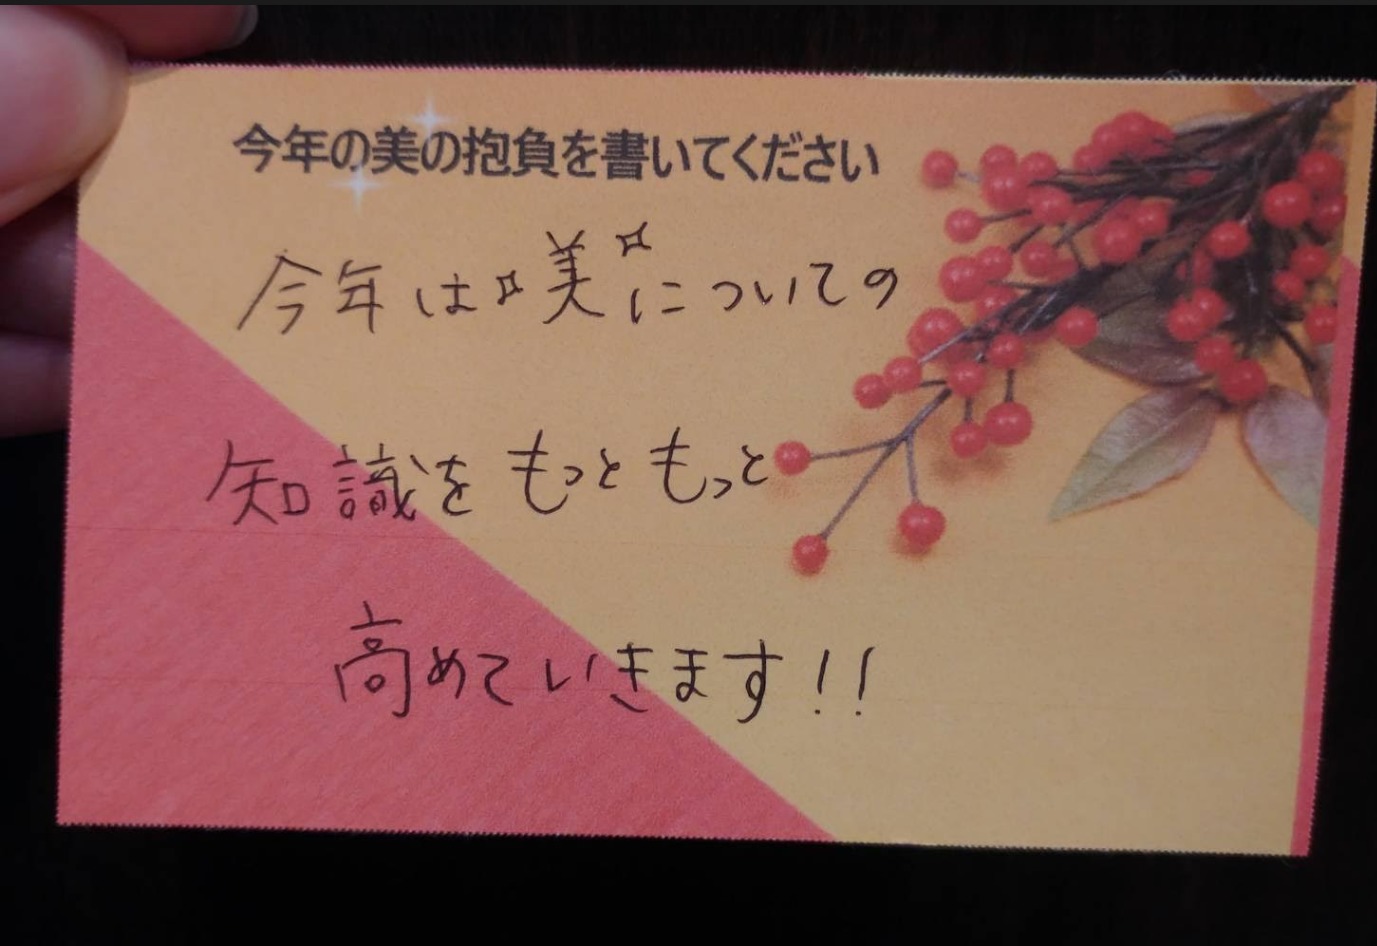 今年の美の抱負を書いてください
今年は✧美✧についての
知識をもっともっと
高めていきます!!